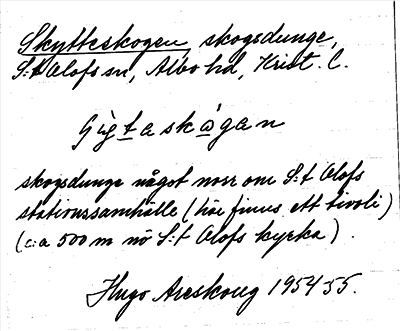 Skytteskogen, skogsdunge,
S:t Olofs sn, Albo hd, Krist. l.
skogsdunge något norr om S:t Olofs
stationssamhälle (här finns ett tivoli)
(c:a 500 m nö S:t Olofs kyrka).
Hugo Areskoug 1954 55.